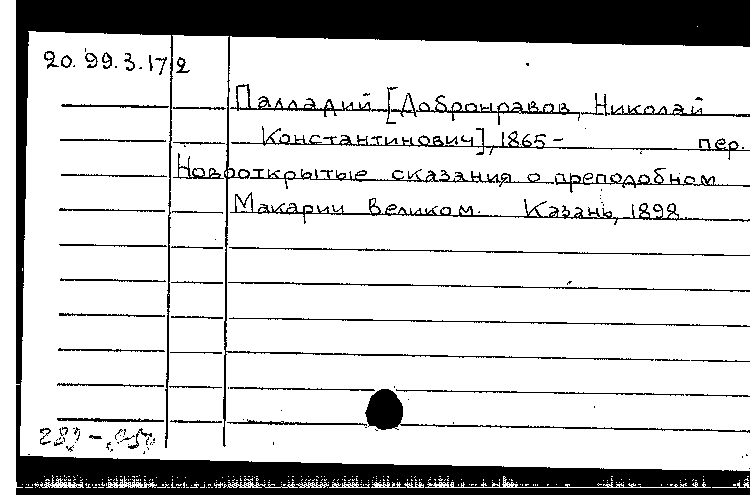 20.99.3.17 2
Палладий [Добронравов, Николай
Константинович], 1865- пер.
Новооткрытые сказания о преподобном
Макарии Великом. Казань, 1898